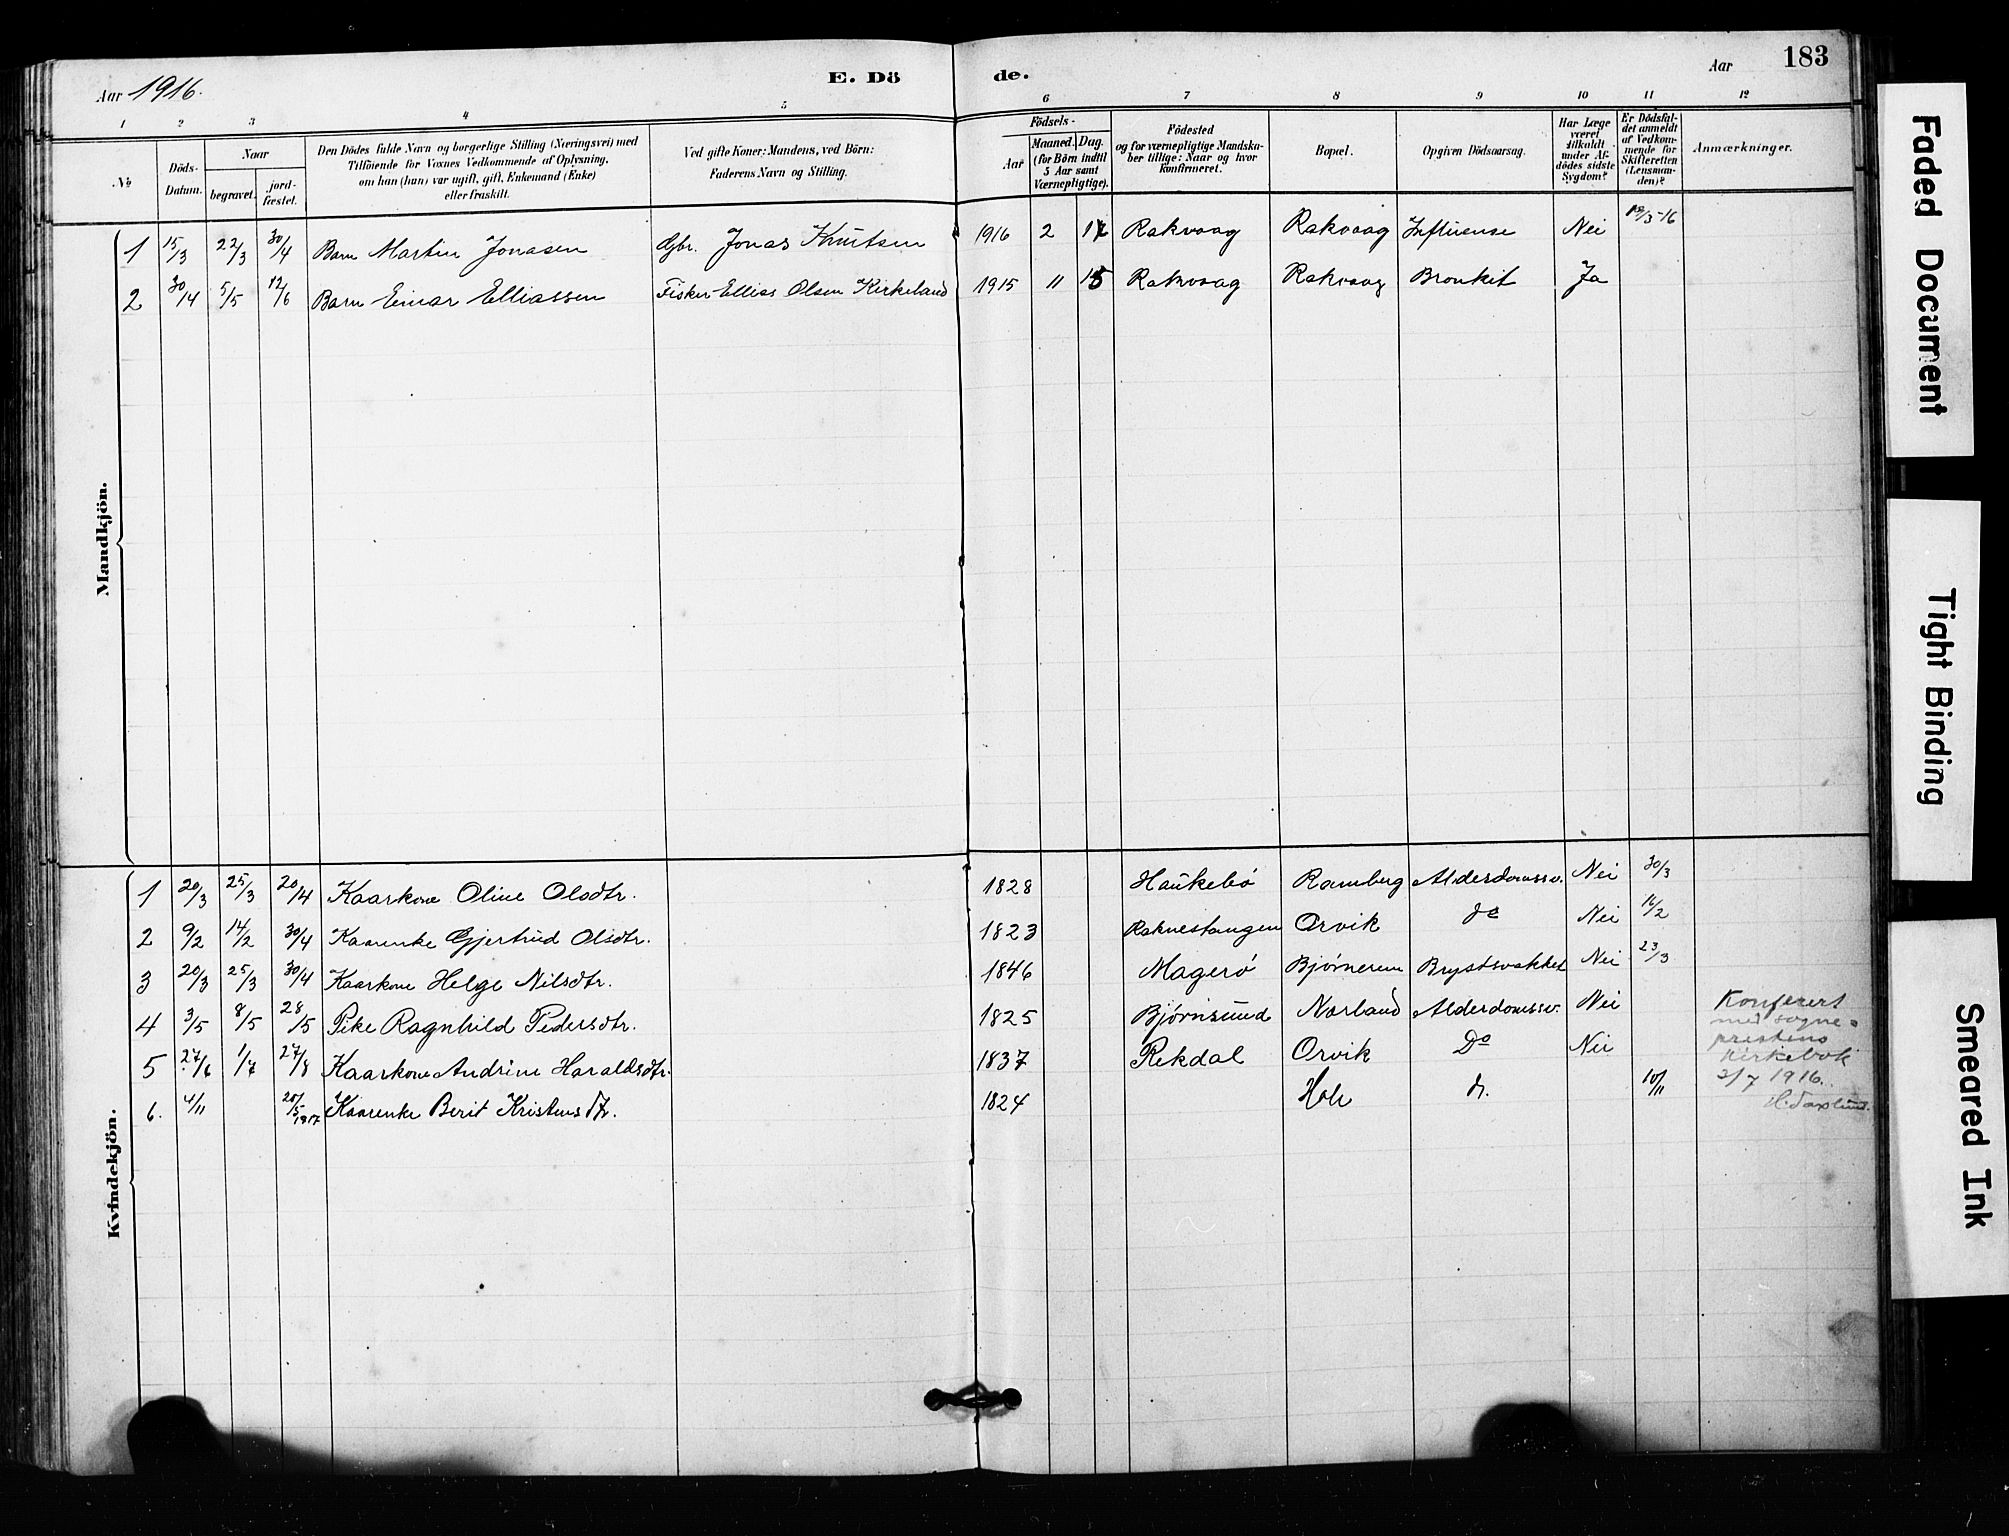 Aar 1916. E. Dö de. Aar 183
1 2 3 4 5 6 7 8 9 10 11 12
No
Döds-
Datum.
Naar
begravet.
jord-
fæstet.
Den Dödes fulde Navn og borgerlige Stilling (Næringsvei) med
Tilföiende for Voxnes Vedkommende af Oplysning,
om han (hun) var ugift, gift, Enkemand (Enke)
eller fraskilt.
Ved gifte Koner: Mandens, ved Börn:
Faderens Navn og Stilling.
Födsels-
Aar
Maaned. Dag.
(for Börn indtil
5 Aar samt
Værnepligtige).
Födested
og for værnepligtige Mandska-
ber tillige: Naar og hvor
konfirmeret.
Bopæl.
Opgiven Dödsaarsag.
Har Læge
været
tilkaldt
under Af-
dödes sidste
Sygdom?
Er Dödsfal-
det anmeldt
af Vedkom-
mende for
Skifteretten
(Lensman-
den)?
Anmærkninger.
Mandkjön.
1 15/3 22/3 30/4 Barn Martin Jonasen Gbr. Jonas Knutsen 1916 2 Rakvaag Rakvaag Influense Nei 19/3-16
2 30/4 5/5 12/6 Barn Einar Elliassen Fisker Ellias Olsen Kirkeland 1915 11 15 Rakvaag Rakvaag Bronkit Ja
Kvindekjön.
1 20/3 25/3 20/4 Kaarkone Oline Olsdtr. 1828 Haukebö Ramberg Alderdomssv. Nei 30/3
2 9/2 14/2 30/4 Kaarenke Gjertrud Olsdtr. 1823 Raknestangen Orvik do Nei 16/2
3 20/3 25/3 30/4 Kaarkone Helge Nilsdtr. 1846 Magerö Bjørnerem Brystsvakhet Nei 23/3
4 3/5 8/5 28/5 Pike Ragnhild Pedersdtr. 1825 Bjørnsund Norland Alderdomssv. Nei
5 27/6 1/7 27/8 Kaarkone Andrine Haraldsdtr. 1837 Rekdal Orvik Do Nei
6. 4/11 20/5 1917 Kaarenke Berit Kristensdtr. 1824 Hole d. 10/11
Konferert
med sogne-
prestens
kirkebok
3/7 1916.
Faded Document
Tight Binding
Smeared Ink